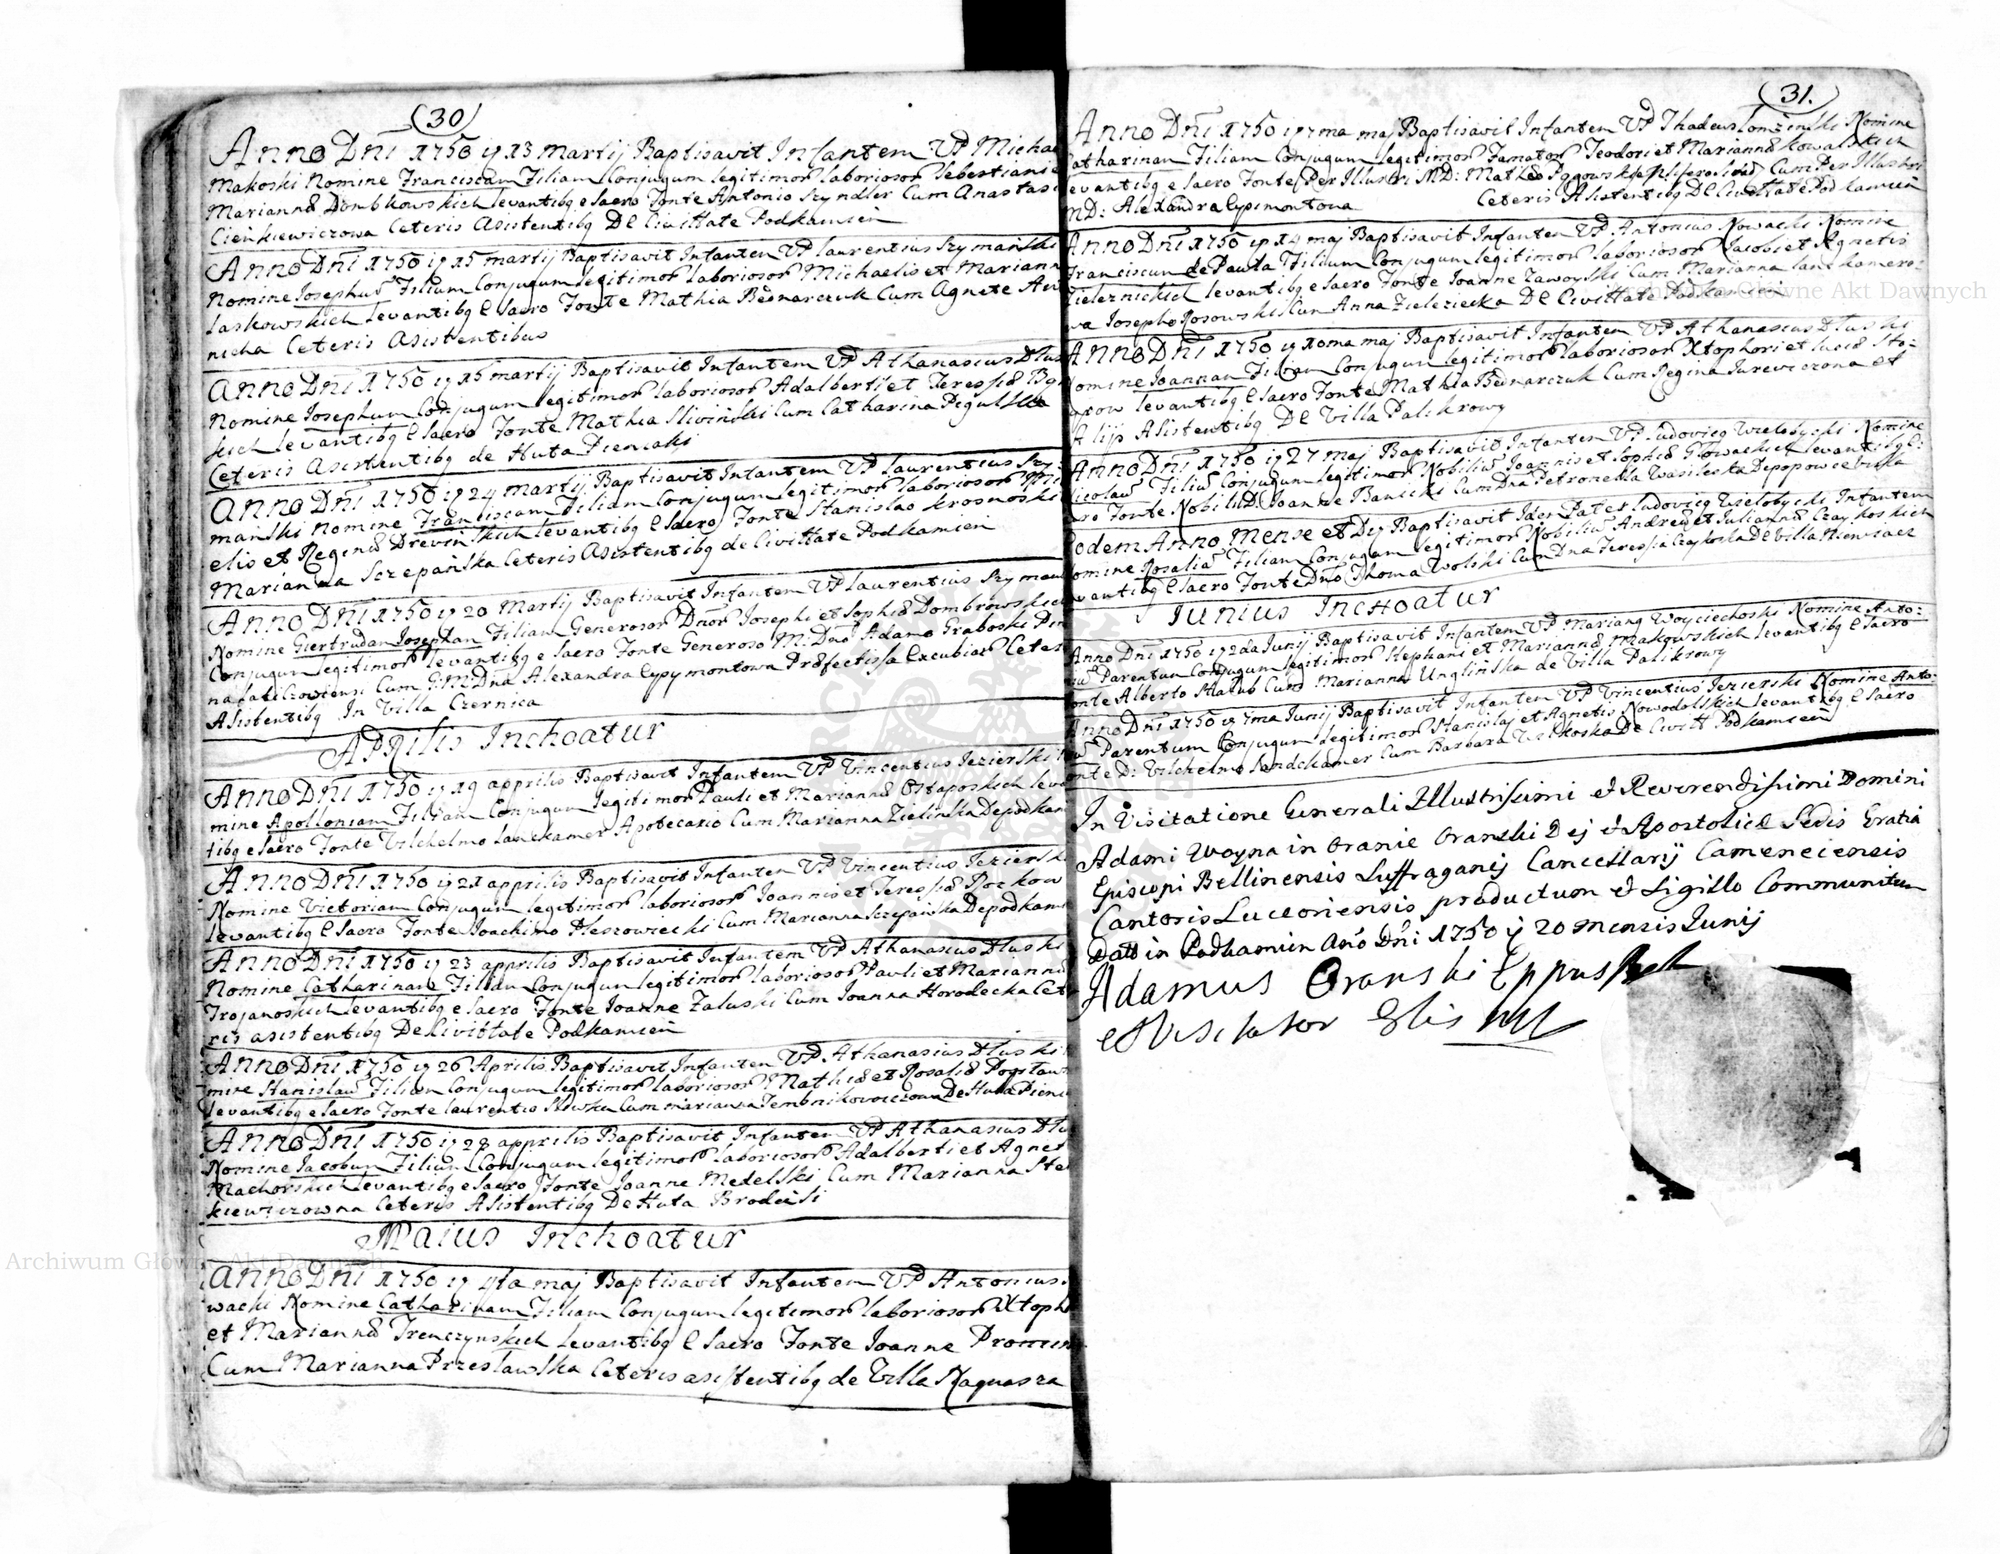 (30)
Anno Dnī 1750 ij 13 Martij Baptisavit Infantem VP Micha
Makoski Nomine Franciscam Filiam Conjugum legitimor laboriosor Sebestiani e
Mariannæ Dombkowskich levantibq e Sacro Fonte Antonio Szyndler Cum Anastasi
Cieńkiewiczowa Ceteris Asistentibq De Civittate Podkamień
Anno Dnī 1750 ij 15 martij Baptisavit Infantem VP laurentius Szymański
Nomine Josephū Filium Conjugum legitimor laboriosor Michaelis et Mariann
laskowskich levantibq e Sacro Fonte Mathia Bednarczuk Cum Agnete
nicha Ceteris Asistentibus
Anno Dnī 1750 ij 15 martij Baptisavit Infantem VP Athanasius Dlus
Nomine Josephum Conjugum legitimor laboriosor Adalberti et Teressiæ
kich levantibq e Sacro Fonte Mathia Sliviński Cum Catharina Pigulska
Ceteris Asistentibq de Huta Pieniaki
Anno Dnī 1750 ij 24 martij Baptisavit Infantem VP laurentius Szy
mański Nomine Franciscam Filiam Conjugum legitimor laboriosor Mi
elis et Reginæ Drewińskich levantibq e Sacro Fonte Stanislao krosnoski
Marianna Sczepańska Ceteris Asistentibq de Civittate Podkamień
Anno Dnī 1750 ij 20 Martij Baptisavit Infantem VP laurentius Szyman
Nomine Giertrudan Josephan Filiam Generosor Dnor Josephi et Sophiæ Dombrowskich
Conjugum legitimor levantibq e Sacro Fonte Generoso M: Dno Adamo Graboski
Cum G: M: Dna Alexandra Cypymontowa Præfectissa Excubiar Ceter
Asistentibq In Villa Czernica
Aprilis Inchoatur
Anno Dnī 1750 ij 19 apprilis Baptisavit Infantem VP Vincentius Jezierski
mine Apolloniam Filiam Conjugum legitimor Pauli et Mariannæ Ostaposkich leva
tibq e Sacro Fonte Vilchelmo landkamer Apotecario Cum Marianna Zielinska De podkam
Anno Dnī 1750 ij 21 apprilis Baptisavit Infantem VP Vincentius Jeziersk
Nomine Victoriam Conjugum legitimor laboriosor Joannis et Teressiæ Rockow
levantibq e Sacro Fonte Joachimo Pleszowiecki Cum Marianna Sczepańska De podkam
Anno Dnī 1750 ij 23 apprilis Baptisavit Infantem VP Athanasius Dluski
Nomine Catharinam Filiam Conjugum legitimor laboriosor Pauli et Mariannæ
Trojanoskich levantibq e Sacro Fonte Joanne Zaluski Cum Joanna Horodecka Cet
ris asistentibq De Civittate Podkamień
Anno Dnī 1750 ij 26 Aprilis Baptisavit Infantem VP Athanasius Dluski
mine Stanislaū Filium Conjugum legitimor laboriosor Mathiæ et Rosaliæ
levantibq e Sacro Fonte laurentio Slowska Cum marianna De Huta Pieni
Anno Dnī 1750 ij 28 apprilis Baptisavit Infantem VP Athanasius Dlu
Nomine Jacobum Filium Conjugum legitimor laboriosor Adalberti et Agnet
Machorskich levantibq e Sacro Fonte Joanne Medelski Cum Marianna Ste
kiewiczowna Ceteris Asistentibq De Huta Brodeisi
Maius Inchoatur
Anno Dnī 1750 ij 4ta maj Baptisavit Infantem VP Antonius
wacki Nomine Catharinam Filiam Conjugum legitimor laboriosor Xtoph
et Mariannæ Trenczynskich levantibq e Sacro Fonte Joanne
Cum Marianna Przeslawska Ceteris asistentibq de Villa Naguasza
(31.)
Anno Dnī 1750 ij 7ma maj Baptisavit Infantem VP Thadeus Lomzinski Nomine
Catharinam Filiam Conjugum legitimor Famator Teodori et Mariannæ kowalskich
levantibq e Sacro Fonte Per Illustri MD: Matheo Cum Per Illustri
MD: Alexandra Cypimontowa Ceteris Asistentibq De Civittate Podkamień
Anno Dnī 1750 ij 14 maj Baptisavit Infantem VP Antonius Nowacki Nomine
Franciscum de Paula Filium Conjugum legitimor laboriosor Jacobi et Agnetis
Zieleznickich levantibq e Sacro Fonte Joanne Zawoyski Cum Marianna landkamero:
wa Josepho Rosowski Cum Anna Zieleziecka De Civittate Podkamień
Anno Dnī 1750 ij 10ma maj Baptisavit Infantem VP Athanasius Dluski
Nomine Joannam Filiam Conjugum legitimor laboriosor Xtophori et luciæ Sto:
levantibq e Sacro Fonte Mathia Bednarczuk Cum Regina Jurewiczowna et
Alijs Asistentibq De Villa Palikrowy
Anno Dnī 1750 ij 27 maj Baptisavit Infantem VP ludovicq Wielobycki Nomine
Nicolaū Filiū Conjugum legitimor Nobiliū Joannis et Sophiæ Glowackich levantibq e
cro Fonte Nobili D Joanne Banicki Cum Dna Petronella Wasileska
Eodem Anno Mense et Dij Baptisavit Idem Pater ludovicq Wielobycki Infantem
Nomine Rosaliā Filiam Conjugum legitimor Nobiliū Andreæ et Juliannæ Czaykoskich
levantibq e Sacro Fonte Dno Thoma Wolski Cum Dna Teressia Czaykoska De Villa Niemiacz
Junius Inchoatur
Anno Dnī 1750 ij 2da Junij Baptisavit Infantem VP Marianq Woyciechoski Nomine Anto:
niū Parentum Conjugum legitimor Stephani et Mariannæ Makowskich levantibq e Sacro
Fonte Alberto Cum Marianna Unglińska de Villa Palikrowy
Anno Dnī 1750 ij 7ma Junij Baptisavit Infantem VP Vincentius Jezierski Nomine Anto:
niū Parentum Conjugum legitimor Stanislaj et Agnetis Nowodolskich levantibq e Sacro
Fonte D: Vilchelmo Landckamer Cum Barbara De Civitt Podkamień
In Visitatione Generali Illustrissimi et Reverendissimi Domini
Adami Woyna in Oranie Oranski Dej et Apostolicæ Sedis Gratia
Episcopi Bellinensis Suffraganij Cancellarij Camenecensis
Cantoris Luceoriensis productum et Sigillo Communitum
Datt in Podkamien Ano Dnī 1750 ij 20 mensis Junij
Adamus Oranski Eppus
et Visitator Glis
Archiwum Główne Akt Dawnych
Archiwum Główne Akt Dawnych